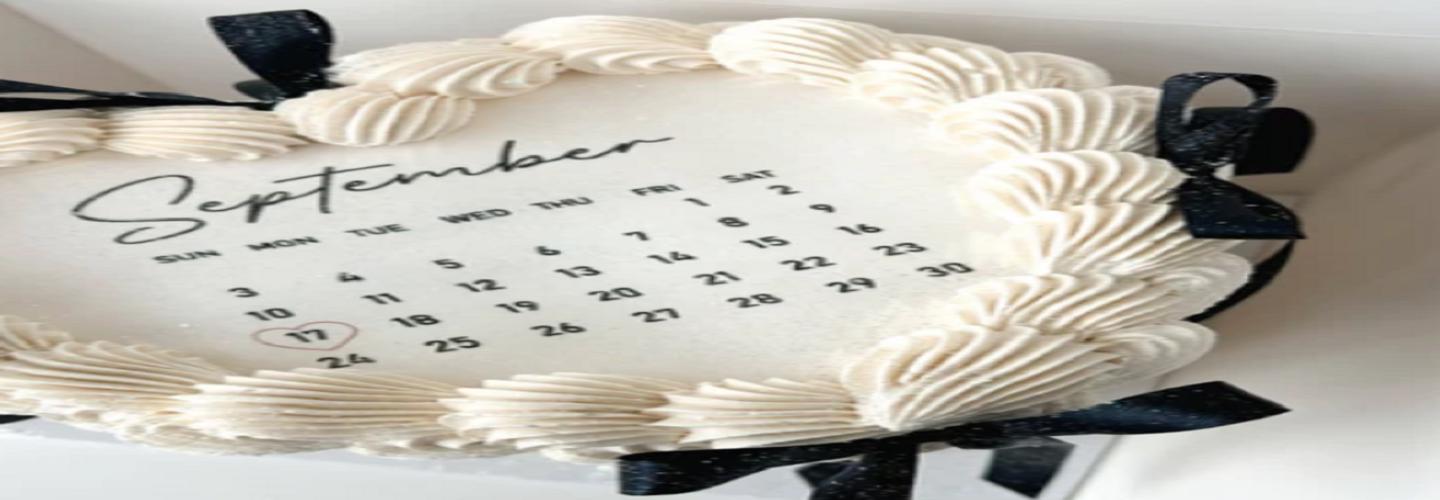 September
SUN MON TUE WED THU FRI SAT
1 2
3 4 5 6 7 8 9
10 11 12 13 14 15 16
17 18 19 20 21 22 23
24 25 26 27 28 29 30